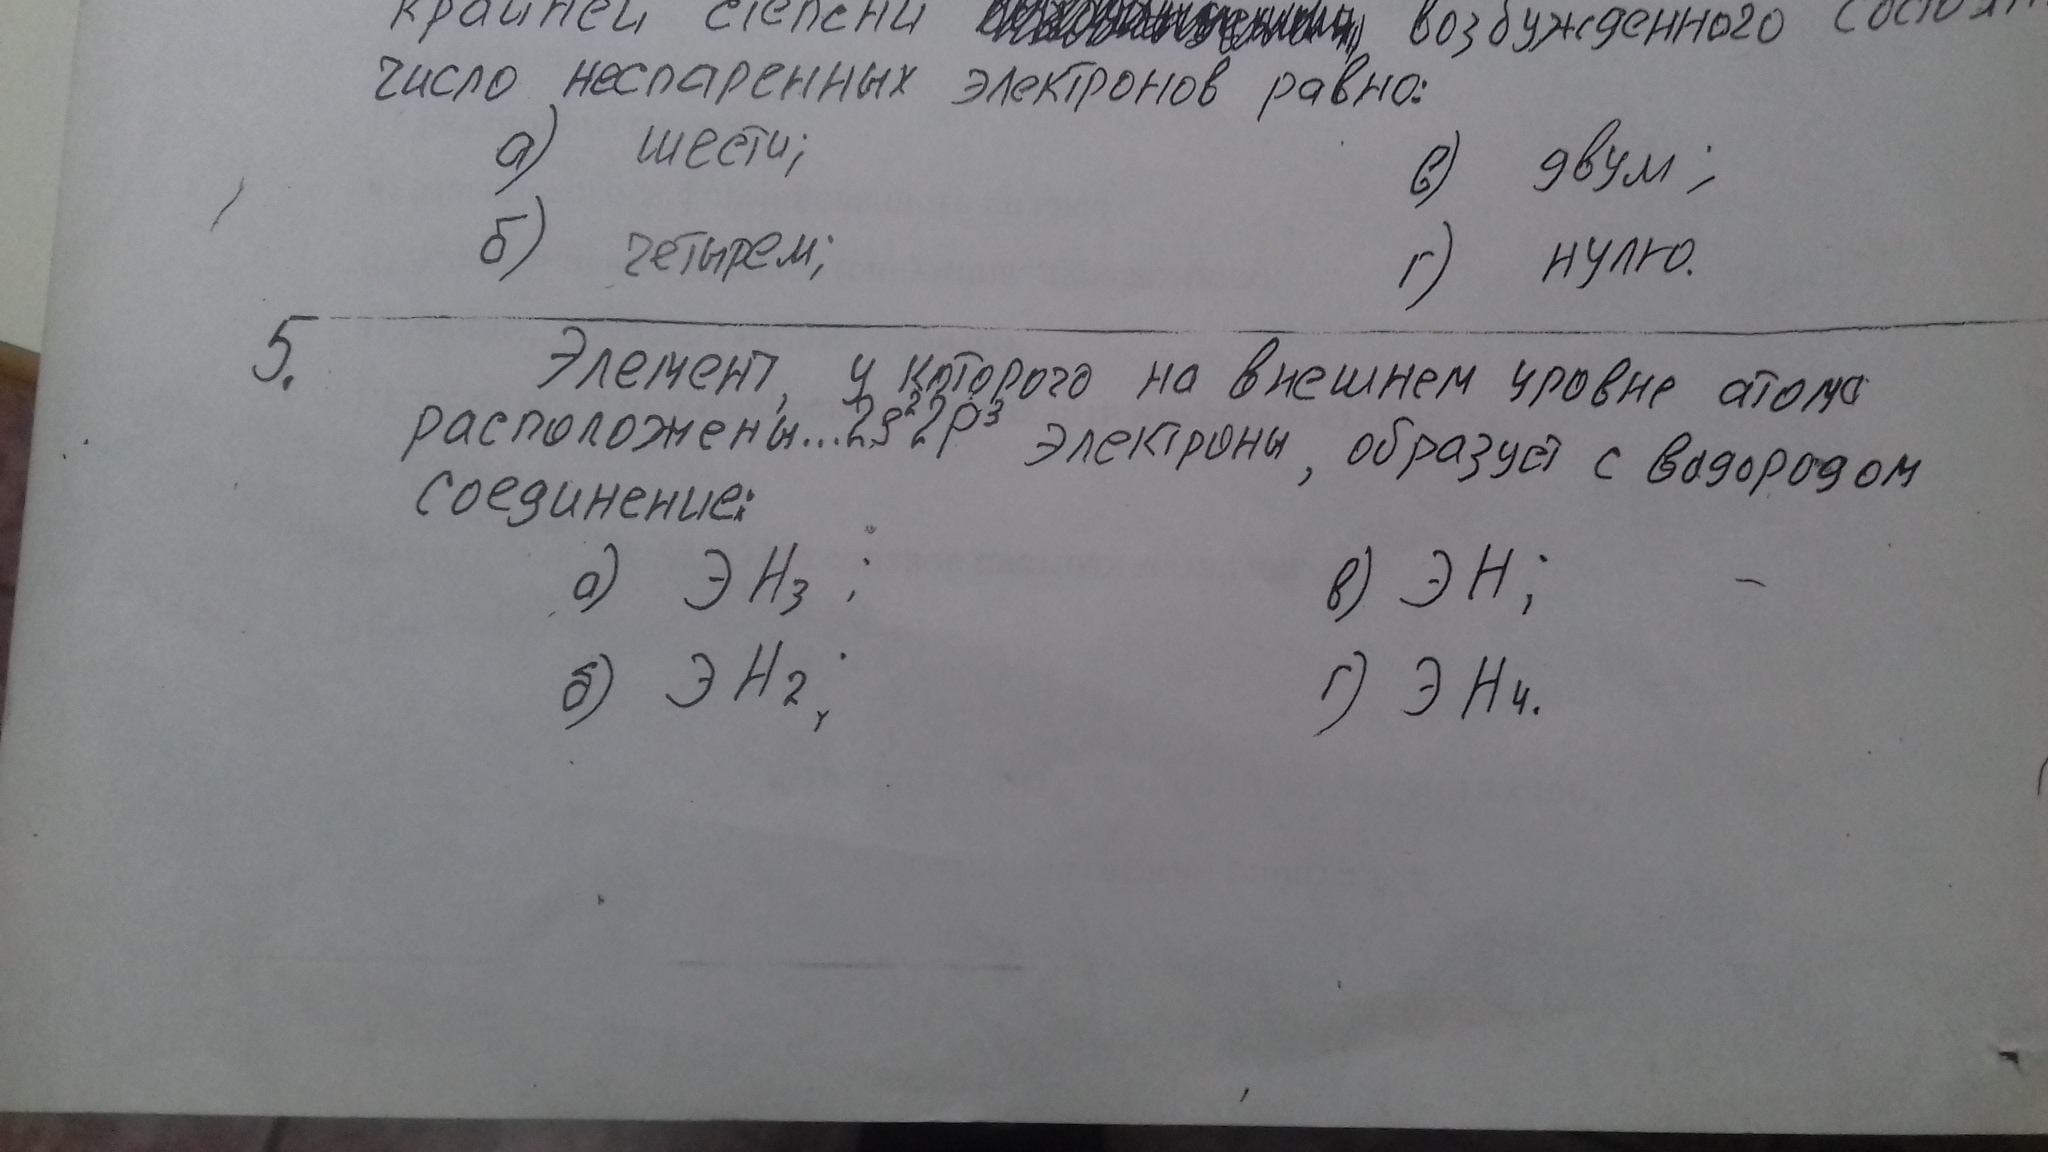 крайней степени возбужденного
число неспаренных электронов равно:
а) шести; в) двум;
б) четырем; г) нулю.
5. Элемент, у которого на внешнем уровне атома
расположены...2s²2p³ электроны, образует с водородом
соединение:
а) ЭН₃; в) ЭН;
б) ЭН₂; г) ЭН₄.